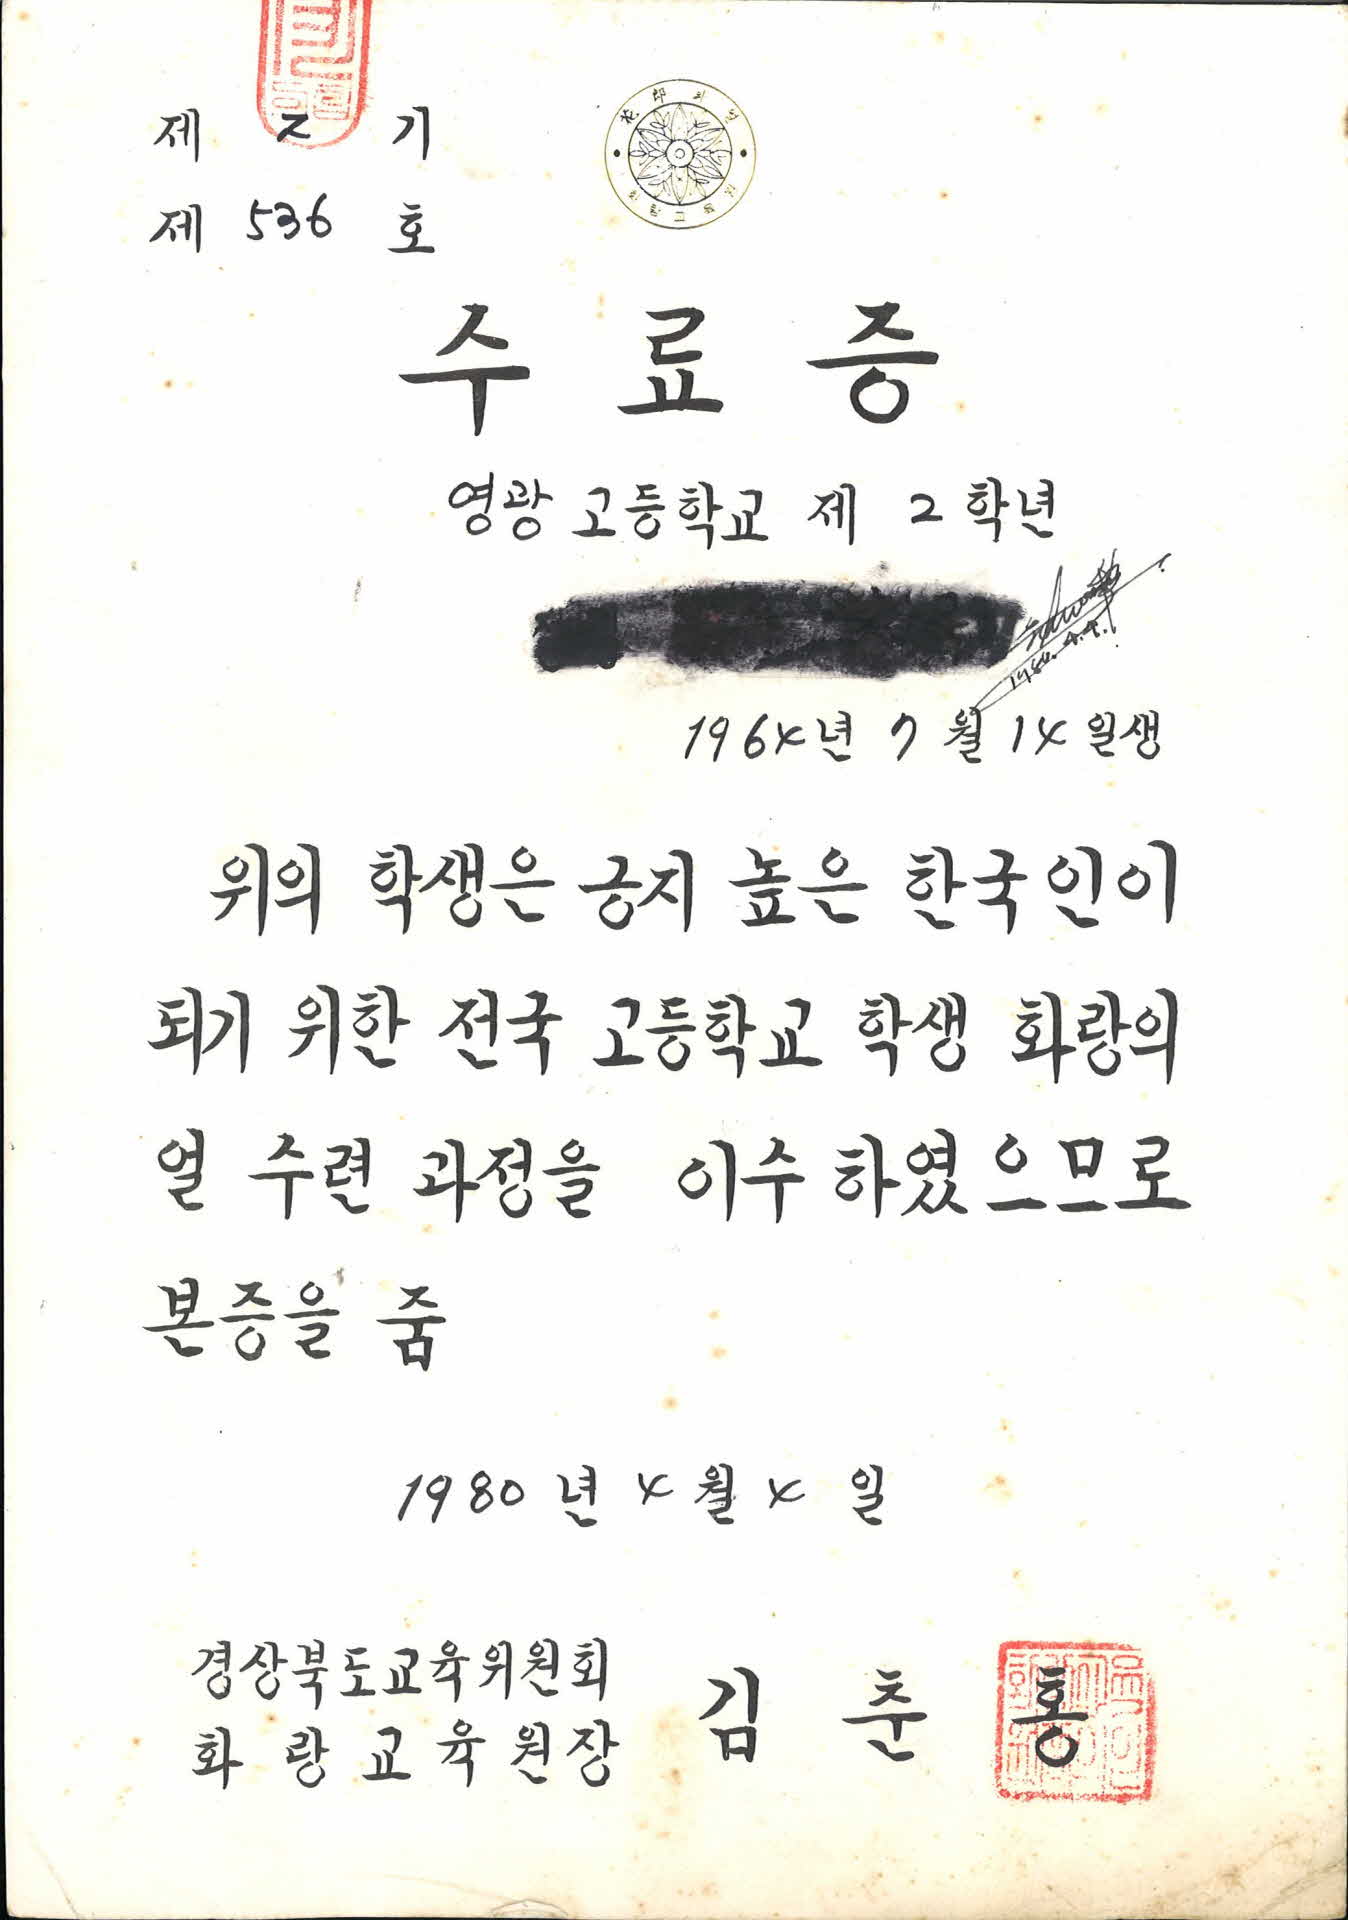 제 2 기
제 536 호
수료증
영광 고등학교 제 2 학년
1984. 4. 4.
1964년 7월 14일생
위의 학생은 긍지 높은 한국인이
되기 위한 전국 고등학교 학생 화랑의
얼 수련 과정을 이수 하였으므로
본증을 줌
1980년 4월 4일
경상북도교육위원회
화랑교육원장 김춘홍